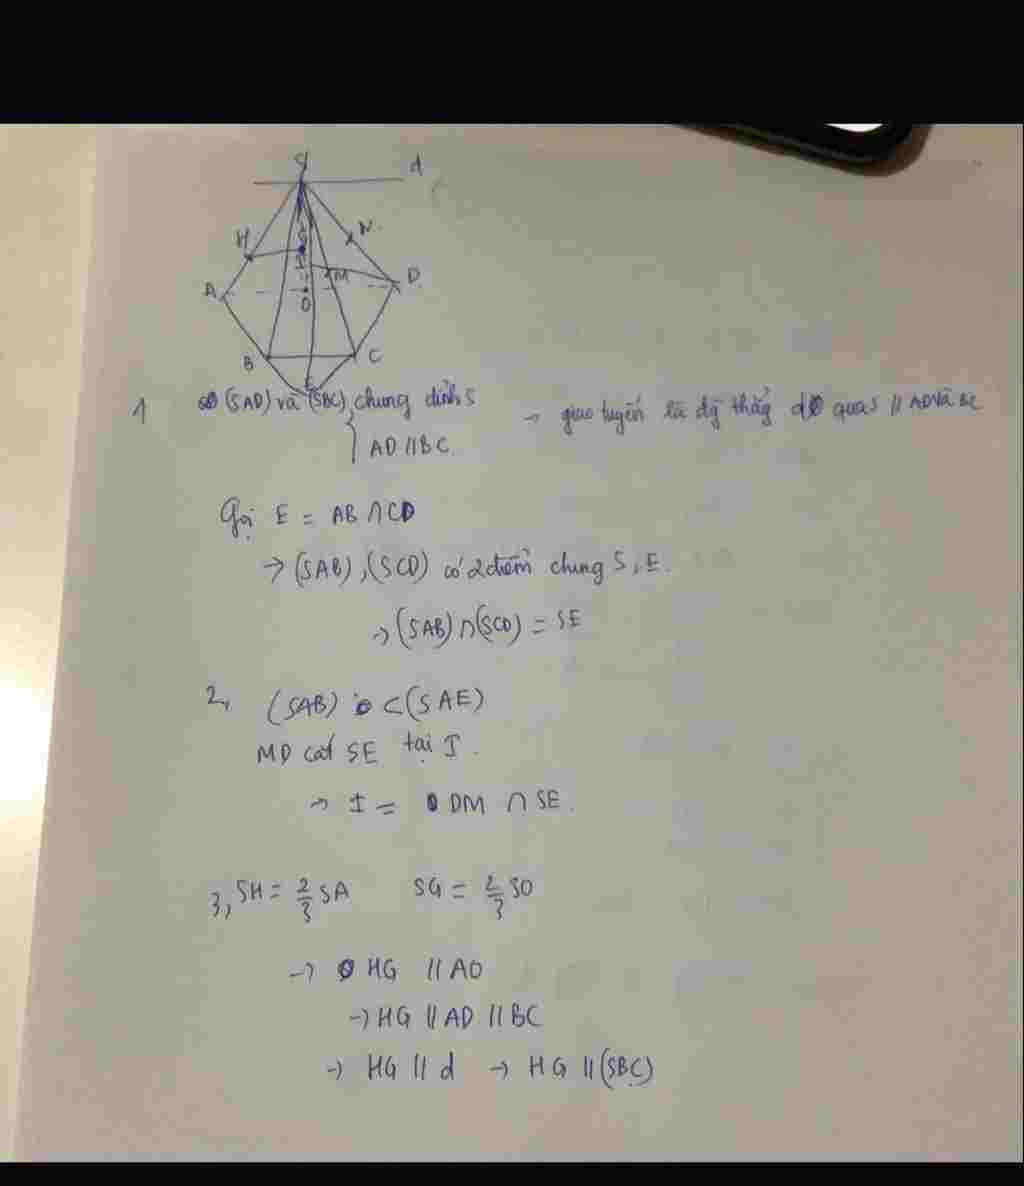 S
d
H
N
G
I
M
A
D
O
B
C
E
1 (SAD) và (SBC) chung đỉnh S → giao tuyến là đg thẳng d qua S // AD và BC
{ AD // BC.
Gọi E = AB ∩ CD
→ (SAB), (SCD) có 2 điểm chung S, E.
→ (SAB) ∩ (SCD) = SE
2, (SAB) ⊂ (SAE)
MD cắt SE tại I.
→ I = DM ∩ SE.
3, SH = 2/3 SA SG = 2/3 SO
→ HG // AO
→ HG // AD // BC
→ HG // d → HG // (SBC)